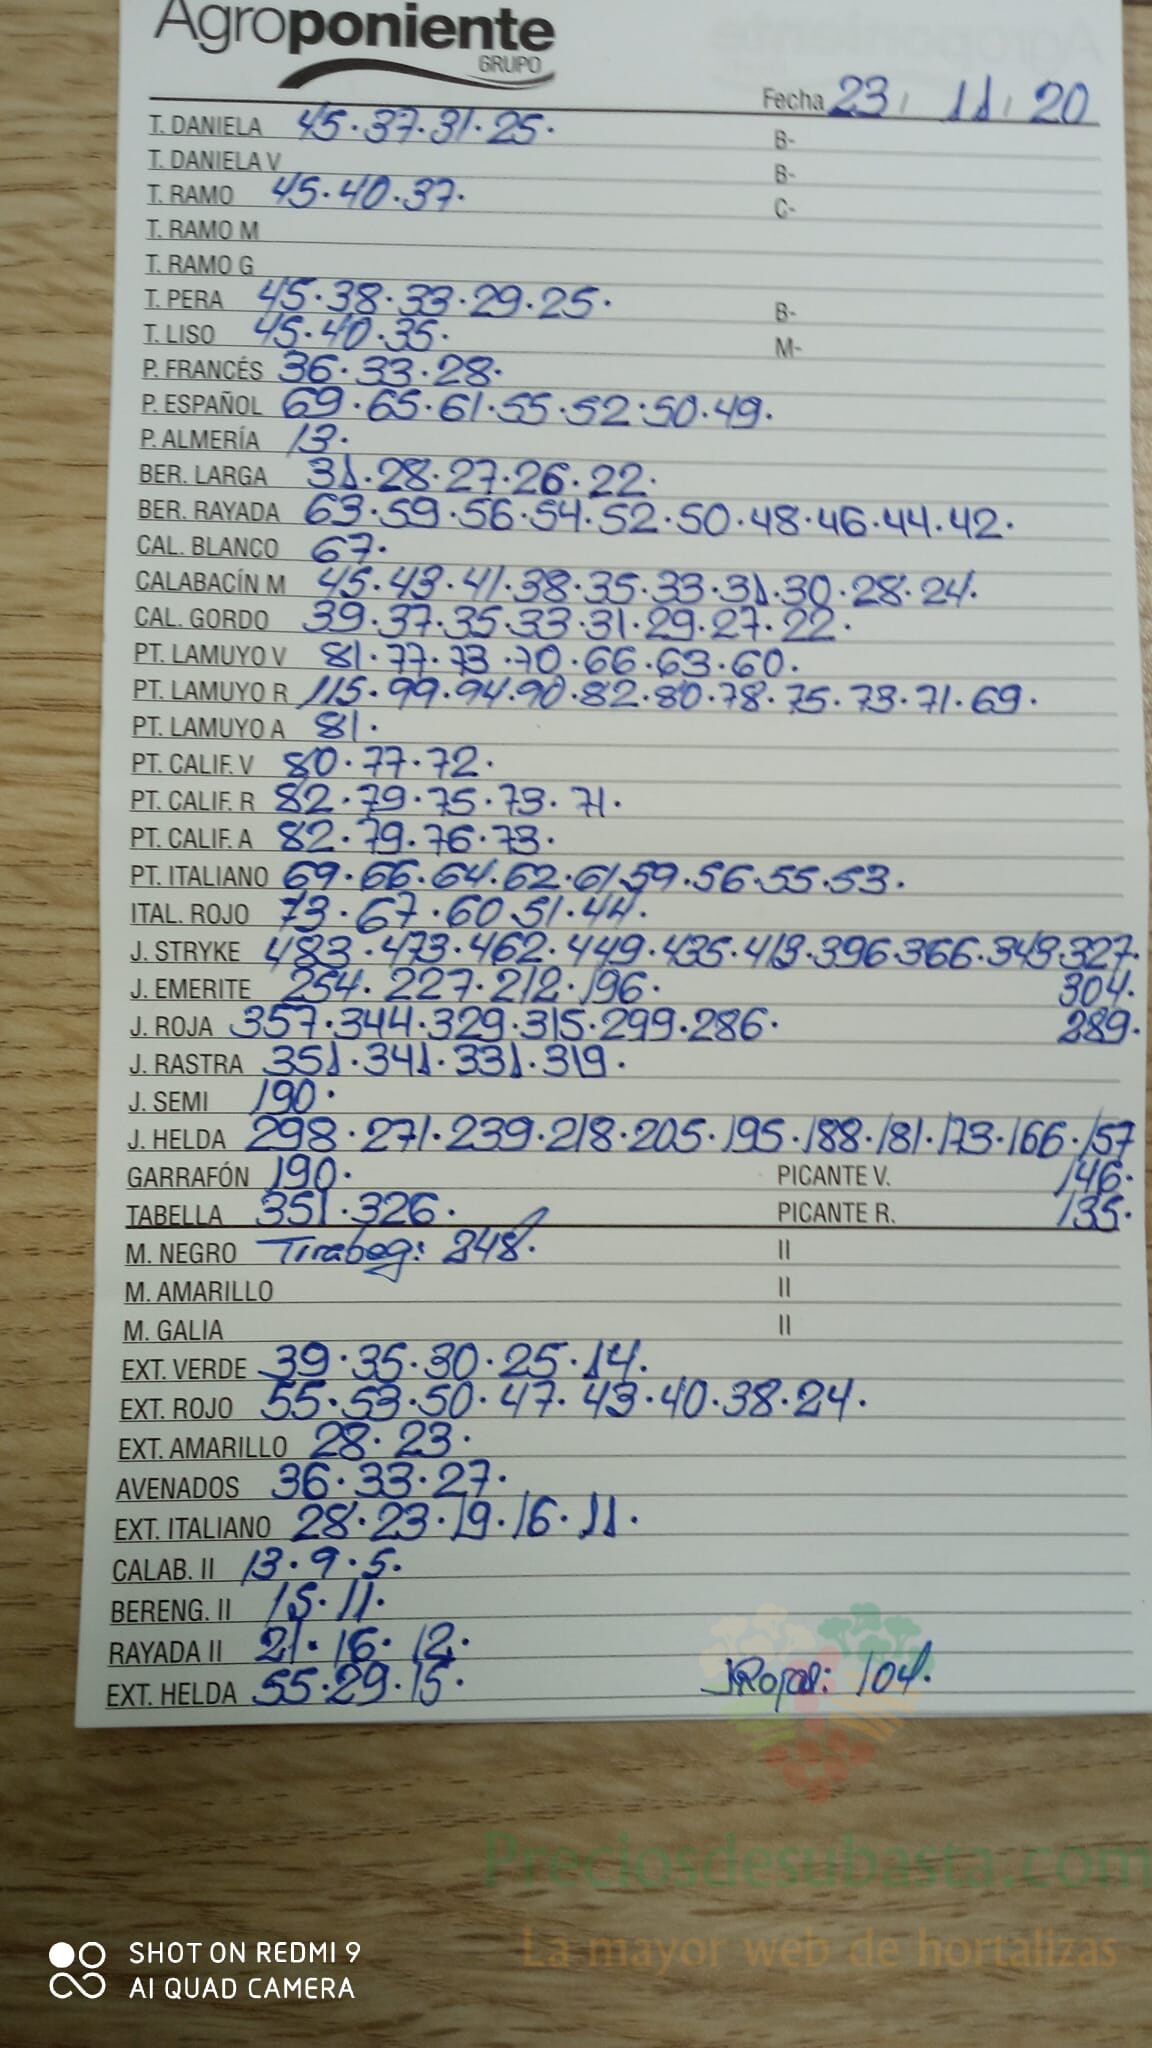 Agroponiente
GRUPO
Fecha 23 / 11 / 20
T. DANIELA 45.37.31.25. B-
T. DANIELA V B-
T. RAMO 45.40.37. C-
T. RAMO M
T. RAMO G
T. PERA 45.38.33.29.25. B-
T. LISO 45.40.35. M-
P. FRANCÉS 36.33.28.
P. ESPAÑOL 69.65.61.55.52.50.49.
P. ALMERÍA 13.
BER. LARGA 31.28.27.26.22.
BER. RAYADA 63.59.56.54.52.50.48.46.44.42.
CAL. BLANCO 67.
CALABACÍN M 45.43.41.38.35.33.31.30.28.24.
CAL. GORDO 39.37.35.33.31.29.27.22.
PT. LAMUYO V 81.77.73.70.66.63.60.
PT. LAMUYO R 115.99.94.90.82.80.78.75.73.71.69.
PT. LAMUYO A 81.
PT. CALIF. V 80.77.72.
PT. CALIF. R 82.79.75.73.71.
PT. CALIF. A 82.79.76.73.
PT. ITALIANO 69.66.64.62.61.59.56.55.53.
ITAL. ROJO 73.67.60.51.44.
J. STRYKE 483.473.462.449.435.413.396.366.343.327.
J. EMERITE 254.227.212.196. 304.
J. ROJA 357.344.329.315.299.286. 289.
J. RASTRA 351.341.331.319.
J. SEMI 190.
J. HELDA 298.271.239.218.205.195.188.181.173.166.157
GARRAFÓN 190. PICANTE V. 146.
TABELLA 351.326. PICANTE R. 135.
M. NEGRO Tirabeq: 248. II
M. AMARILLO II
M. GALIA II
EXT. VERDE 39.35.30.25.14.
EXT. ROJO 55.53.50.47.43.40.38.24.
EXT. AMARILLO 28.23.
AVENADOS 36.33.27.
EXT. ITALIANO 28.23.19.16.11.
CALAB. II 13.9.5.
BERENG. II 15.11.
RAYADA II 21.16.12.
EXT. HELDA 55.29.15. JRojas: 104.
Preciosdesubasta.com
La mayor web de hortalizas
SHOT ON REDMI 9
AI QUAD CAMERA